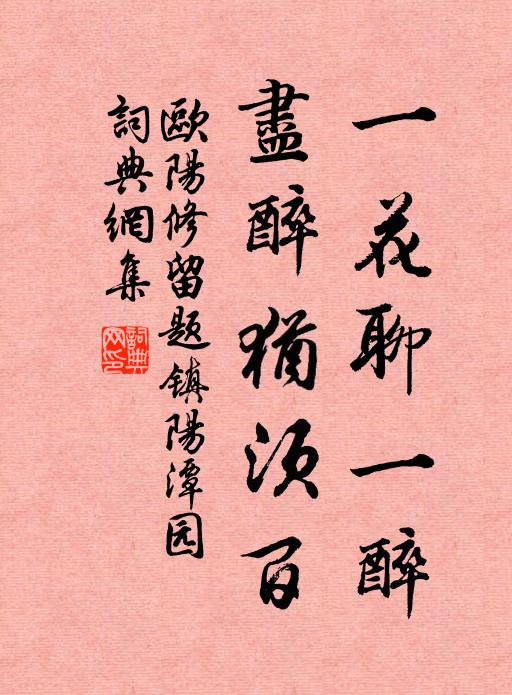 一花聊一醉
盡醉猶須百
歐陽修留題镇陽潭园
詞典網集
詞典
网印